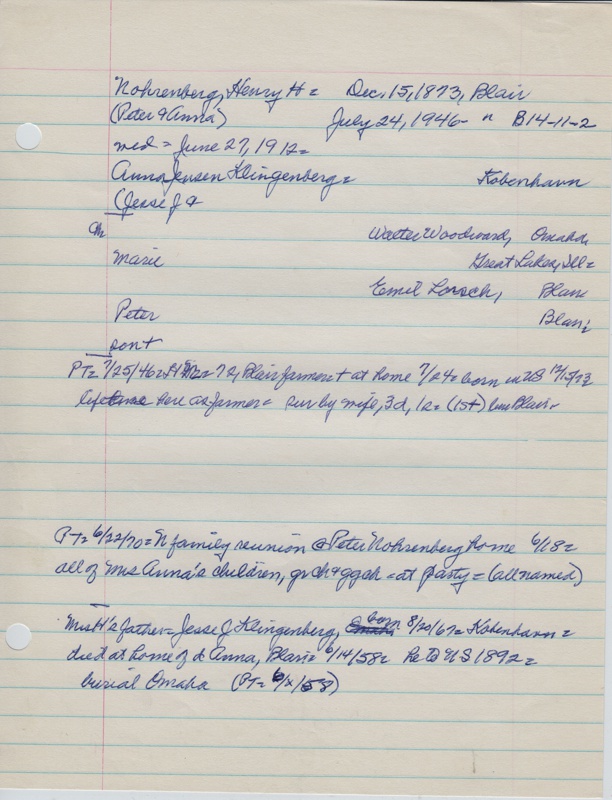 Nohrenberg, Henry H = Dec. 15, 1873, Blair
(Peter & Anna) July 24, 1946 - " B14-11-2
med = June 27, 1912 =
Anna Jensen Klingenberg = Kobenhavn
(Jesse J &
Ch
Walter Woodward, Omaha
Marie Great Lakes, Ill =
Emil Lorsch, Blair
Peter Blair
son +
PT = 7/25/46 = = 72, Blair farmer + at home 7/24 = born in US 12/15/73
life here as farmer = sur by wife, 3d, 1s = (1st) bur Blair -
PT = 6/22/70 = N family reunion @ Peter Nohrenberg home 6/28 =
all of Mrs Anna's children, gr ch & ggch = at party = (all named)
Mrs H's father = Jesse J Klingenberg, born 8/20/67 = Kobenhavn =
died at home of d Anna, Blair = 6/14/58 = he to US 1892 =
burial Omaha (PT = 6/x/58)